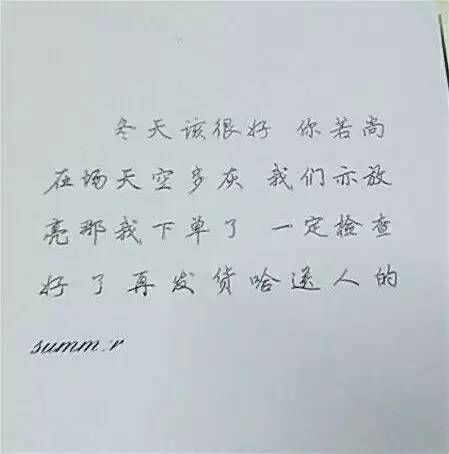 冬天该很好 你若尚
在场天空多灰 我们亦放
亮那我下单了 一定检查
好了再发货哈送人的
summ.r